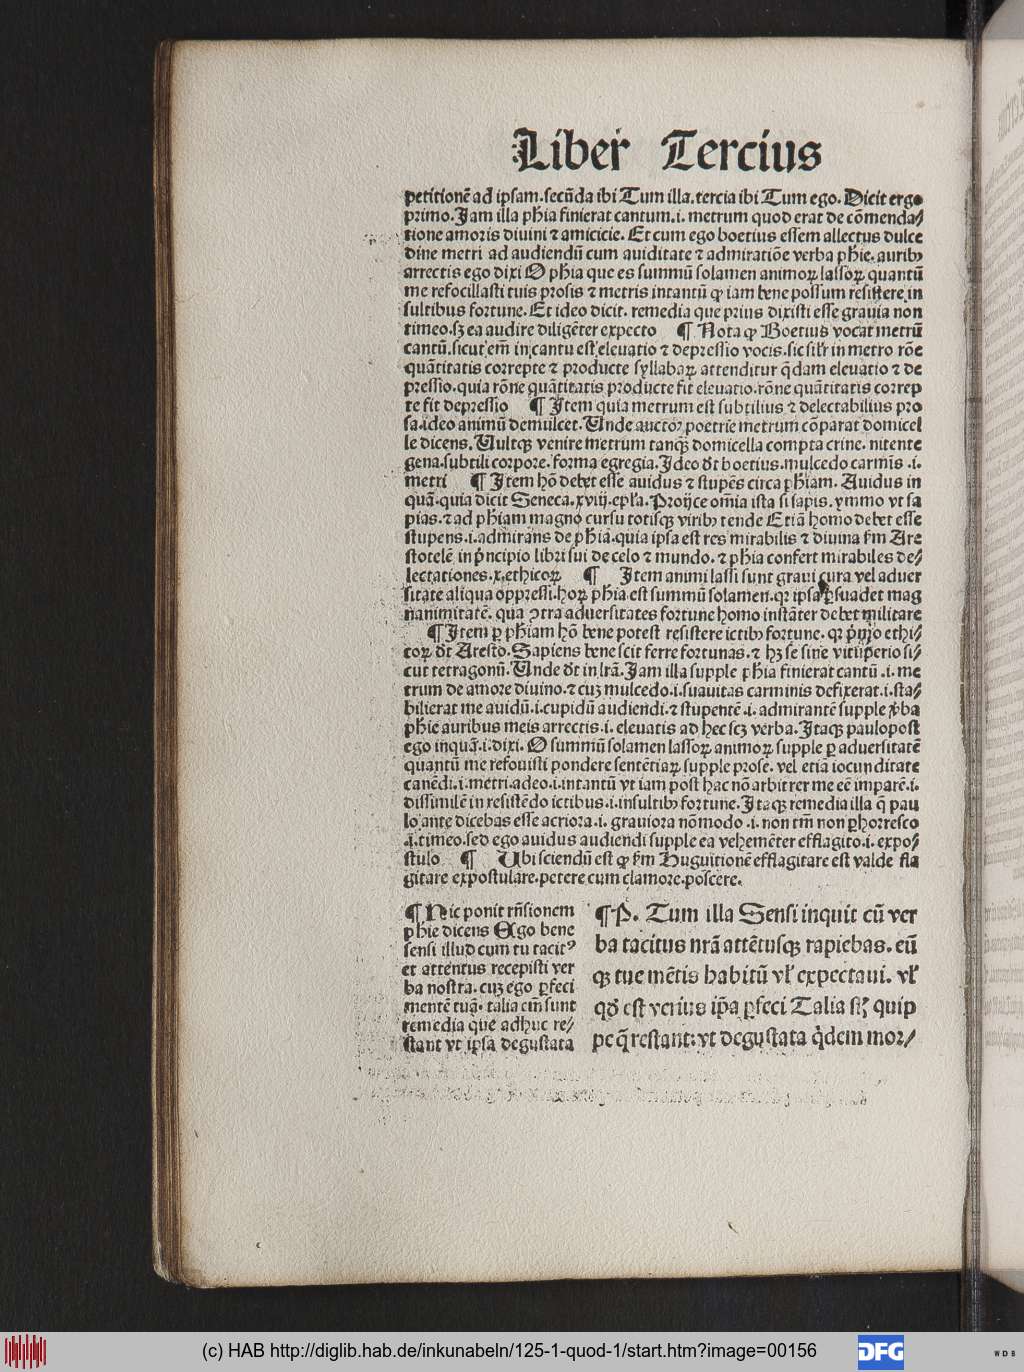 Liber Tercius
petitionē ad ipsam.secūda ibi Tum illa.tercia ibi Tum ego. Dicit ergo
primo.Jam illa phīa finierat cantum.i. metrum quod erat de cōmenda⸗
tione amoris diuini ⁊ amicicie. Et cum ego boetius essem allectus dulce
dine metri ad audiendū cum auiditate ⁊ admiratiōe verba phīe. auribꝫ
arrectis ego dixi O phīa que es summū solamen animoꝝ lassoꝝ quantū
me refocillasti tuis prosis ⁊ metris intantū ꝙ iam bene possum resistere in
sultibus fortune. Et ideo dicit. remedia que prius dixisti esse grauia non
timeo.sꝫ ea audire diligēter expecto ¶ Nota ꝙ Boetius vocat metrū
cantū.sicut em̄ in cantu est eleuatio ⁊ depressio vocis.sic silr̄ in metro rōe
quātitatis correpte ⁊ producte syllabaꝝ attenditur q̄dam eleuatio ⁊ de
pressio.quia rōne quātitatis producte fit eleuatio.rōne quātitatis correp
te fit depressio ¶ Item quia metrum est subtilius ⁊ delectabilius pro
sa.ideo animū demulcet. Unde auctor poetrie metrum cōparat domicel
le dicens. Uultqꝫ venire metrum tanqꝫ domicella compta crine. nitente
gena.subtili corpore.forma egregia. Ideo dt̄ boetius.mulcedo carmīs .i.
metri ¶ Item hō debet esse auidus ⁊ stupēs circa phīam. Auidus in
quā.quia dicit Seneca.xviij.epl̄a.Proijce om̄ia ista si sapis. ymmo vt sa
pias. ⁊ ad phīam magno cursu totisqꝫ viribꝫ tende Etiā homo debet esse
stupens.i.admirans de phīa.quia ipsa est res mirabilis ⁊ diuina fm̄ Are
stotelē in pͥncipio libri sui de celo ⁊ mundo. ⁊ phīa confert mirabiles de⸗
lectationes.x.ethicoꝝ ¶ Item animi lassi sunt graui cura vel aduer
sitate aliqua oppressi.hoꝝ phīa est summū solamen.qr ipsa ꝑsuadet mag
nanimitatē. qua ꝯtra aduersitates fortune homo instāter debet militare
¶ Item ꝑ phīam hō bene potest resistere ictibꝫ fortune. qr pͥmo ethi⸗
coꝝ dt̄ Aresto. Sapiens bene scit ferre fortunas. ⁊ hꝫ se sine vituperio si⸗
cut tetragonū. Unde dt̄ in lr̄a. Jam illa supple phīa finierat cantū .i. me
trum de amore diuino. ⁊ cuꝫ mulcedo.i.suauitas carminis defixerat.i.sta⸗
bilierat me auidū.i.cupidū audiendi. ⁊ stupentē .i. admirantē supple ꝟba
phīe auribus meis arrectis.i. eleuatis ad hec scꝫ verba. Itaqꝫ paulopost
ego inquā.i.dixi. O summū solamen lassoꝝ animoꝝ supple ꝑ aduersitatē
quantū me refouisti pondere sentētiaꝝ supple prose. vel etiā iocunditate
canēdi.i.metri.adeo.i.intantū vt iam post hac nō arbitrer me eē imparē.i.
dissimilē in resistēdo ictibus.i.insultibꝫ fortune. Itaqꝫ remedia illa q̄ pau
lo ante dicebas esse acriora.i. grauiora nōmodo .i. non tm̄ non ꝑhorresco
.i.timeo.sed ego auidus audiendi supple ea vehemēter efflagito.i. expo⸗
stulo ¶ Ubi sciendū est ꝙ fm̄ Huguitionē efflagitare est valde fla
gitare expostulare.petere cum clamore.poscere.
¶ Hic ponit rn̄sionem
phīe dicens Ego bene
sensi illud cum tu tacitꝰ
et attentus recepisti ver
ba nostra. cuꝫ ego ꝑfeci
mentē tuā. talia em̄ sunt
remedia que adhuc re⸗
stant vt ipsa degustata
¶ P. Tum illa Sensi inquit cū ver
ba tacitus nr̄a attētusqꝫ rapiebas. eū
qꝫ tue mētis habitū vl̄ expectaui. vl̄
qd̄ est verius ip̄a ꝑfeci Talia sꝫ quip
pe q̄ restant: vt degustata qͥdem mor⸗
(c) HAB http://diglib.hab.de/inkunabeln/125-1-quod-1/start.htm?image=00156
DFG
WDB